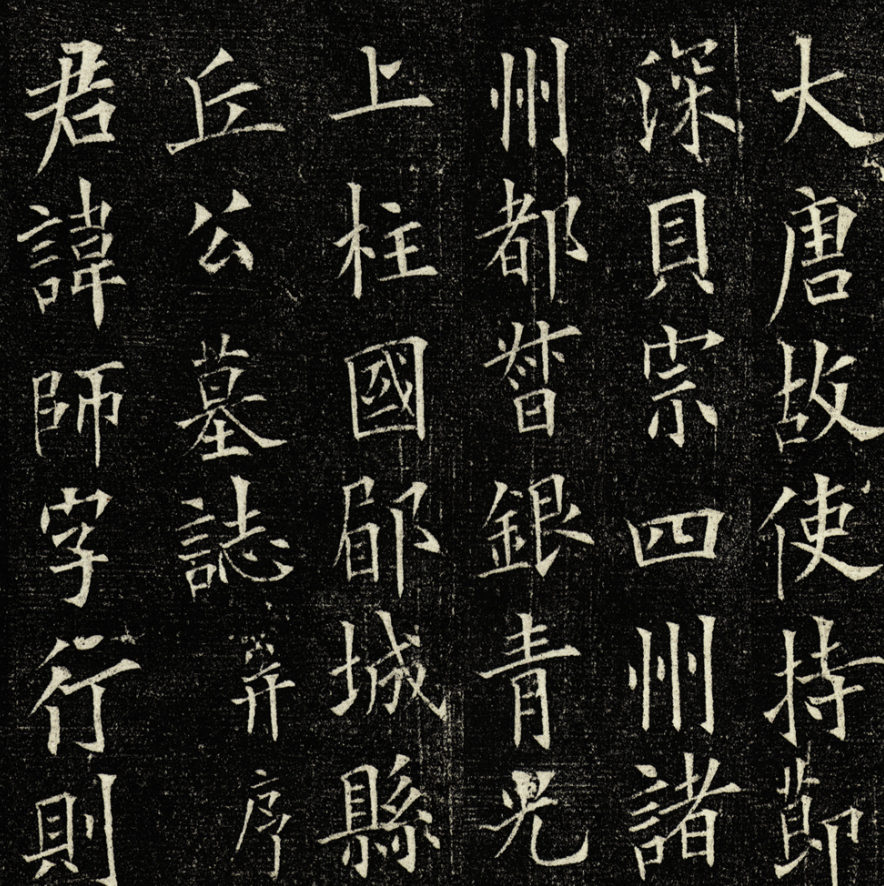 大唐故使持莭
深貝宗四州諸
州都督銀青光
上柱國郿城縣
丘公墓誌并序
君諱師字行則